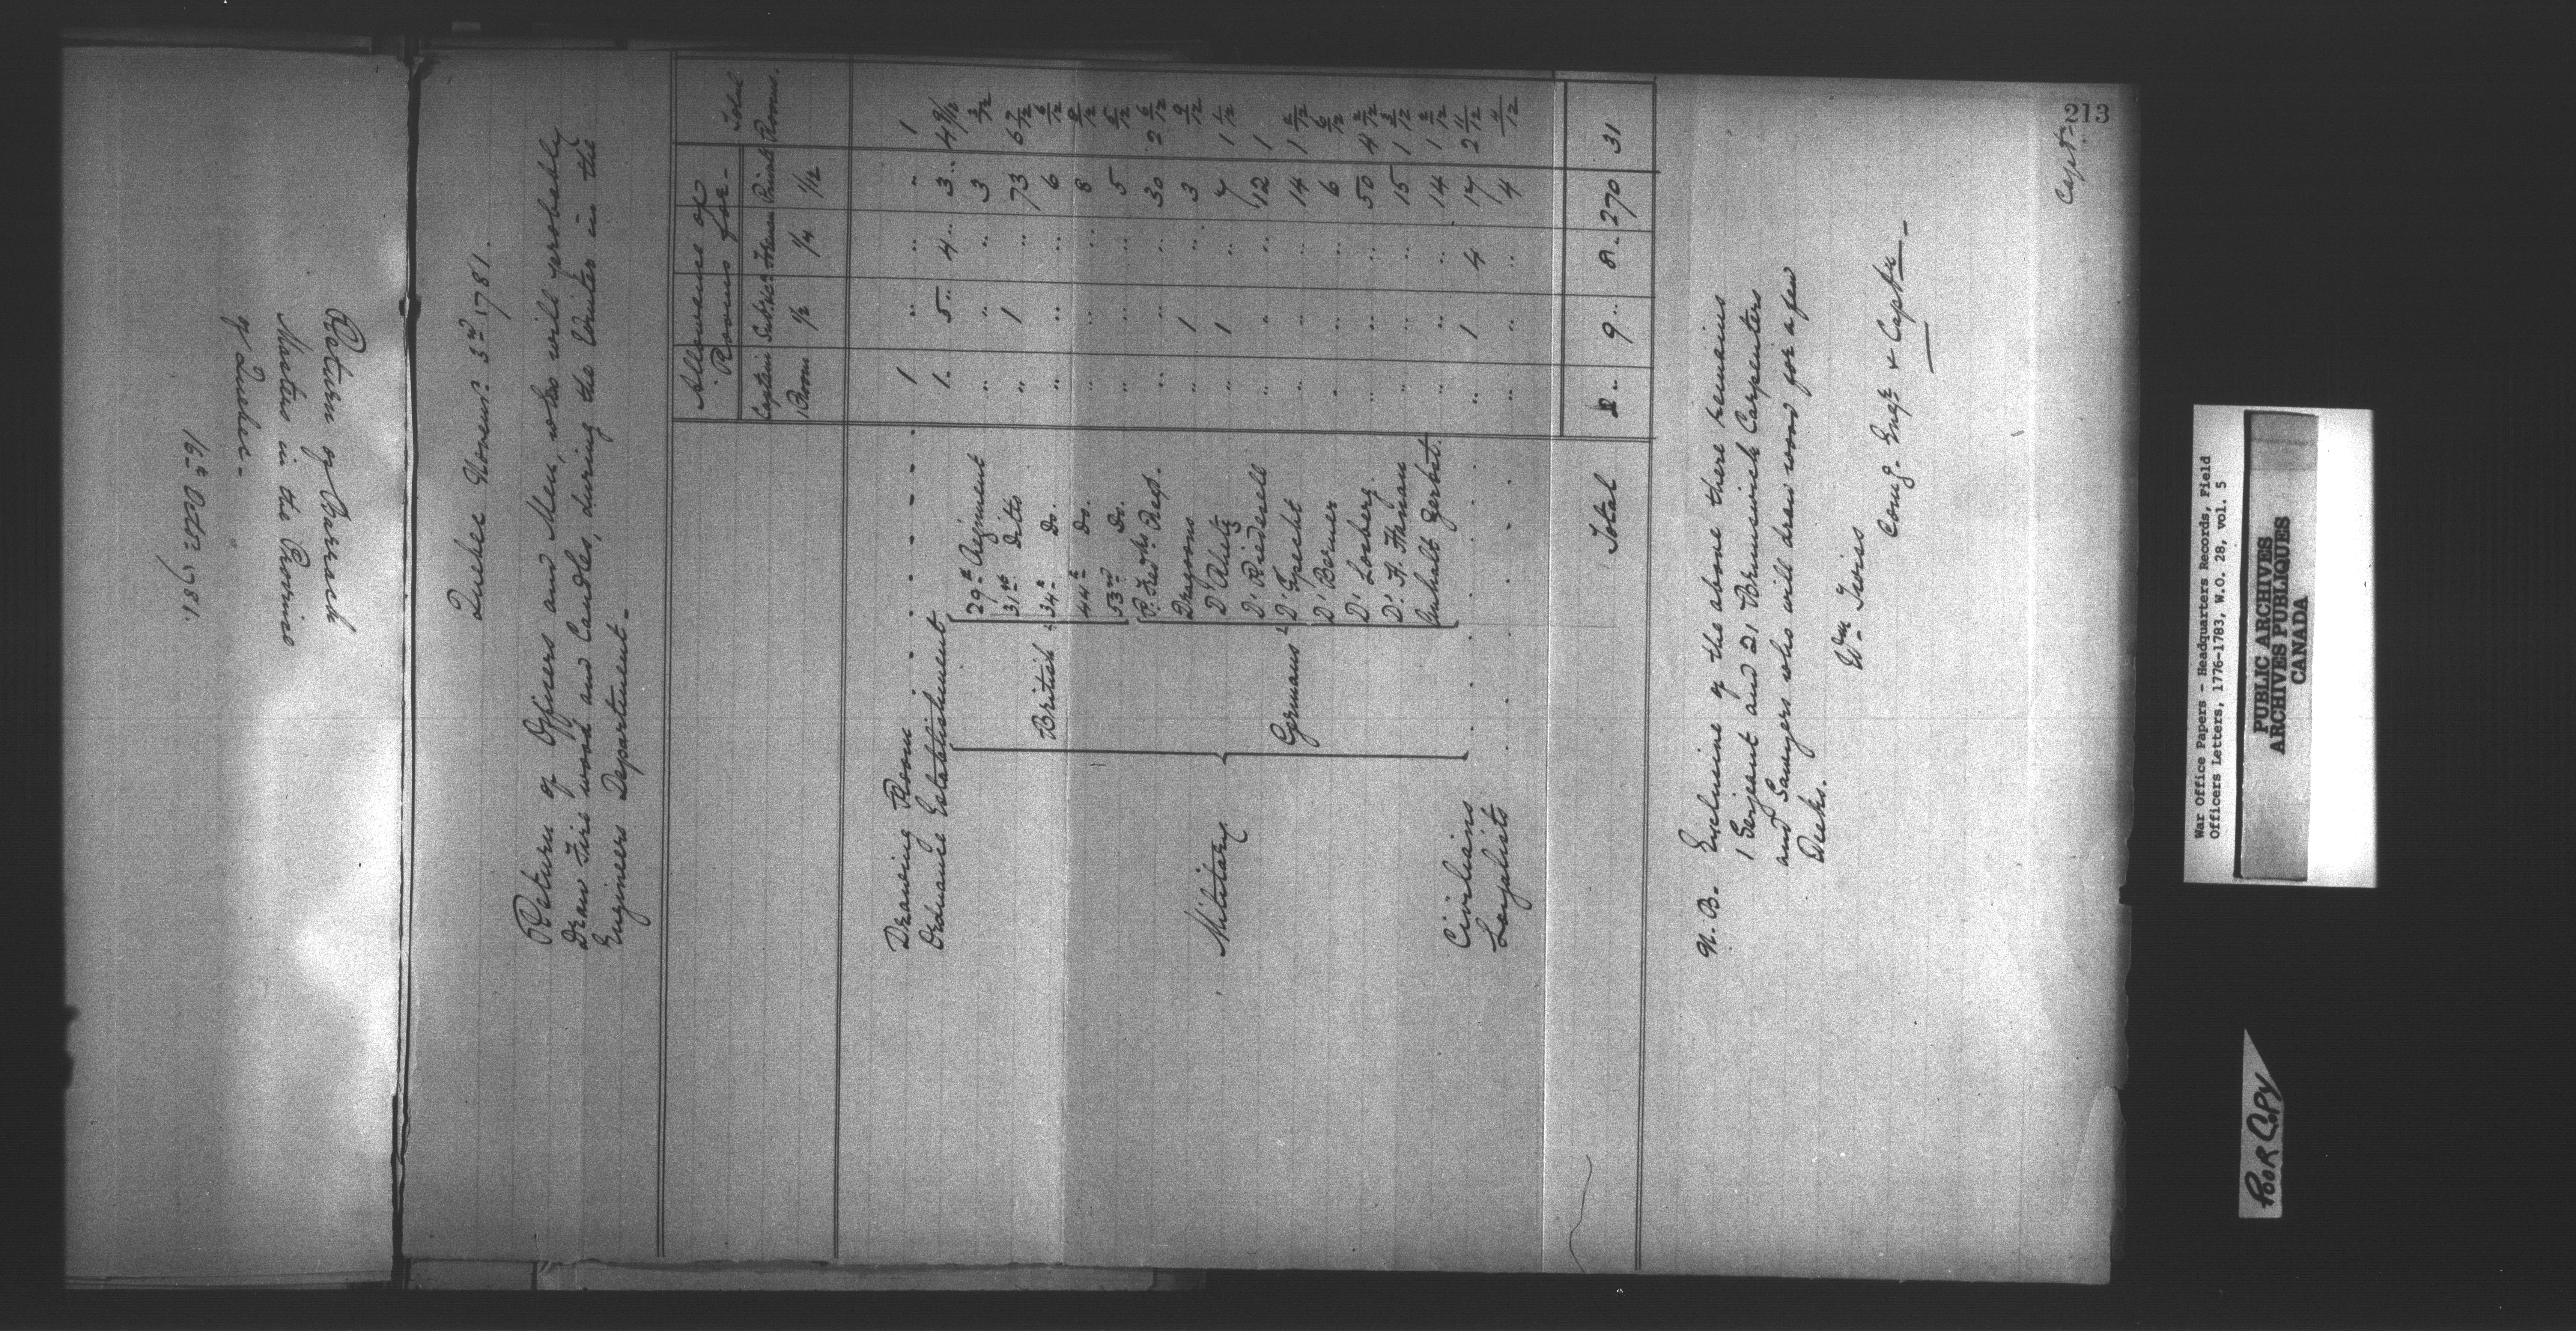 Return of Barrack
Masters in the Province
of Quebec -
16th Octor 1781.
213
Quebec Novemr. 3rd 1781.
Return of Officers and Men, who will probably
Draw Fire wood and Candles, during the Winter in the
Engineers Department -
Allowance of Rooms for - Total Rooms.
Captain Sub. &c Foremen Privates
1 Room 1/2 1/4 1/12
Drawing Room 1 " " " 1
Ordnance Establishment 1 5 4 3 4 9/12
Military
British
29th Regiment " " " 3 3/12
31st Ditto " 1 " 73 6 7/12
34th Do. " " " 6 6/12
44th Do. " " " 8 8/12
53rd Do. " " " 5 5/12
Germans
P. Fredks. Regt. " " " 30 2 6/12
Dragoons " 1 " 3 9/12
D'. Rhetz " 1 " 7 1 1/12
D'. Riedesell " " " 12 1
D'. Specht " " " 14 1 2/12
D'. Berner " " " 6 6/12
D'. Losberg. " " " 50 4 2/12
D'. H. Hanau " " " 15 1 3/12
Anhalt Zerbst. " " " 14 1 2/12
Civilians " 1 4 17 2 11/12
Loyalists " " " 4 4/12
Total 2 9 8 270 31
N. B. Exclusive of the above there remains
1 Serjeant and 21 Brunswick Carpenters
and Sawyers who will draw wood for a few
Weeks.
Wm Twiss
Comg. Engr. & Captn -
Captn
War Office Papers - Headquarters Records, Field
Officers Letters, 1776-1783, W.O. 28, vol. 5
PUBLIC ARCHIVES
ARCHIVES PUBLIQUES
CANADA
POOR COPY